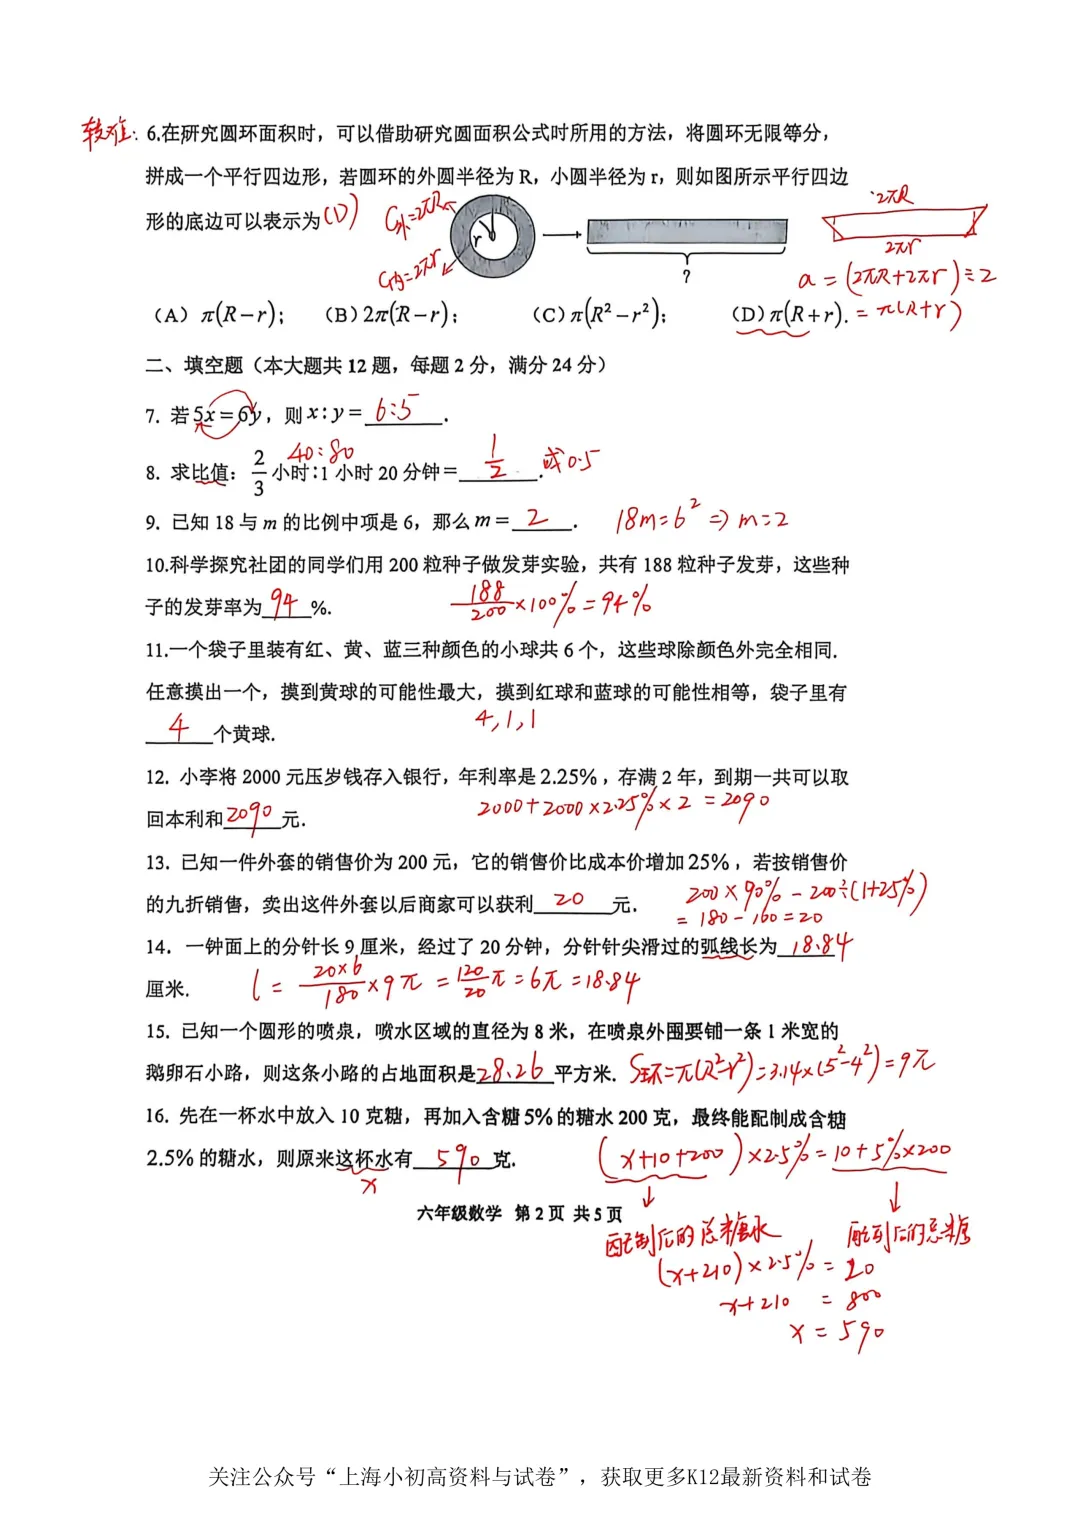 较难: 6.在研究圆环面积时，可以借助研究圆面积公式时所用的方法，将圆环无限等分，
拼成一个平行四边形，若圆环的外圆半径为 R，小圆半径为 r，则如图所示平行四边
形的底边可以表示为 (D)
C外=2πR
C内=2πr
r
?
2πR
2πr
a = (2πR+2πr)÷2
= π(R+r)
(A) π(R－r);  (B) 2π(R－r);  (C) π(R²－r²);  (D) π(R+r).
二、填空题（本大题共 12 题，每题 2 分，满分 24 分）
7. 若 5x＝6y，则 x:y＝ 6:5 .
40:80
8. 求比值：2/3 小时:1 小时 20 分钟＝ 1/2 . 或0.5
9. 已知 18 与 m 的比例中项是 6，那么 m＝ 2 . 18m=6² ⇒ m=2
10.科学探究社团的同学们用 200 粒种子做发芽实验，共有 188 粒种子发芽，这些种
子的发芽率为 94 %. 188/200 ×100%=94%
11.一个袋子里装有红、黄、蓝三种颜色的小球共 6 个，这些球除颜色外完全相同.
任意摸出一个，摸到黄球的可能性最大，摸到红球和蓝球的可能性相等，袋子里有
4 个黄球. 4,1,1
12. 小李将 2000 元压岁钱存入银行，年利率是 2.25%，存满 2 年，到期一共可以取
回本利和 2090 元. 2000+2000×2.25%×2 =2090
13. 已知一件外套的销售价为 200 元，它的销售价比成本价增加 25%，若按销售价
的九折销售，卖出这件外套以后商家可以获利 20 元. 200×90%-200÷(1+25%)
= 180-160=20
14. 一钟面上的分针长 9 厘米，经过了 20 分钟，分针针尖滑过的弧线长为 18.84
厘米. l = 20×6/180 ×9π = 120/20 π =6π =18.84
15. 已知一个圆形的喷泉，喷水区域的直径为 8 米，在喷泉外围要铺一条 1 米宽的
鹅卵石小路，则这条小路的占地面积是 28.26 平方米. S环=π(R²-r²)=3.14×(5²-4²)=9π
16. 先在一杯水中放入 10 克糖，再加入含糖 5% 的糖水 200 克，最终能配制成含糖
2.5% 的糖水，则原来这杯水有 590 克. (x+10+200)×2.5%=10+5%×200
x
六年级数学 第 2 页 共 5 页
配制后的总糖水 配制后的总糖
(x+210)×2.5% = 20
x+210 = 800
x = 590
关注公众号“上海小初高资料与试卷”，获取更多K12最新资料和试卷